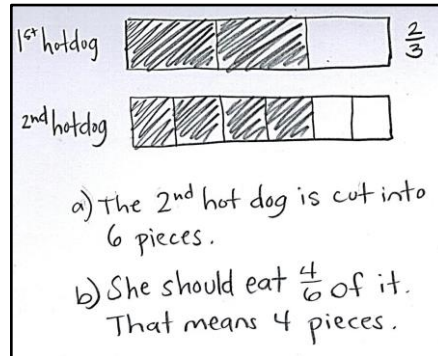 1st hotdog
2/3
2nd hotdog
a) The 2nd hot dog is cut into
6 pieces.
b) She should eat 4/6 of it.
That means 4 pieces.